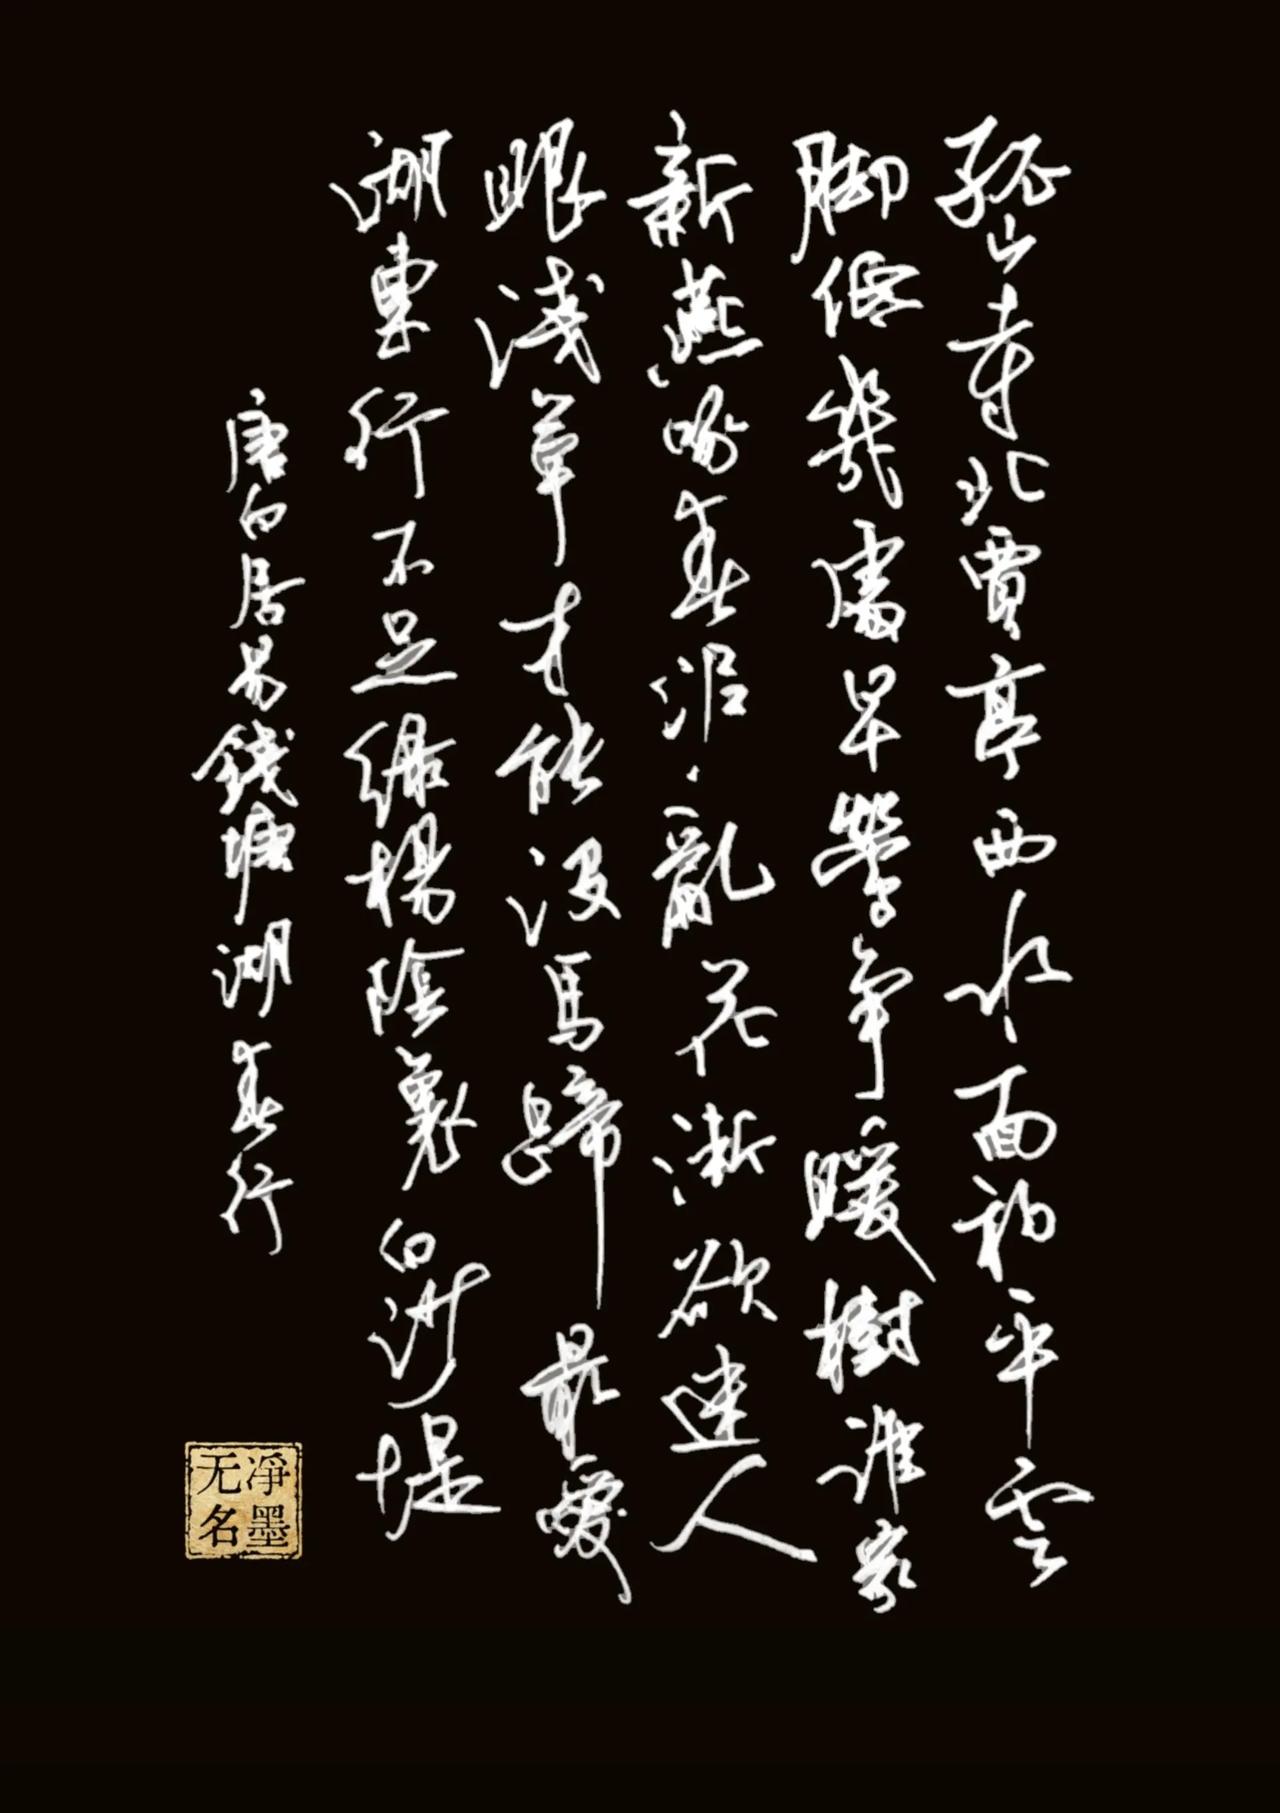 孤山寺北賈亭西水面初平雲
脚低幾處早鶯争暖樹誰家
新燕啄春泥亂花漸欲迷人
眼淺草才能没馬蹄最愛
湖東行不足綠楊陰裏白沙堤
唐白居易錢塘湖春行
凈墨
无名